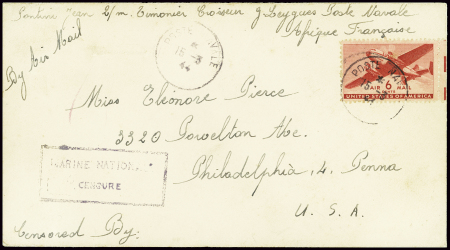 Jean 2/m. Timonier Croiseur G Leygues Poste Navale
Afrique Française
By Air Mail
POSTE NAVALE
15
POSTE NAVALE
15
6
AIR MAIL
UNITED STATES OF AMERICA
Miss Eleonore Pierce
3320 Powelton Ave.
Philadelphia, 4. Penna
U. S. A.
MARINE NATIONALE
CENSURE
Censored By: